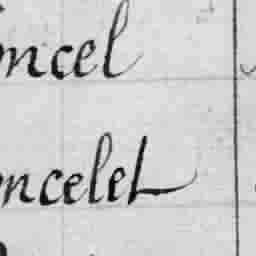 ncel
ncelet